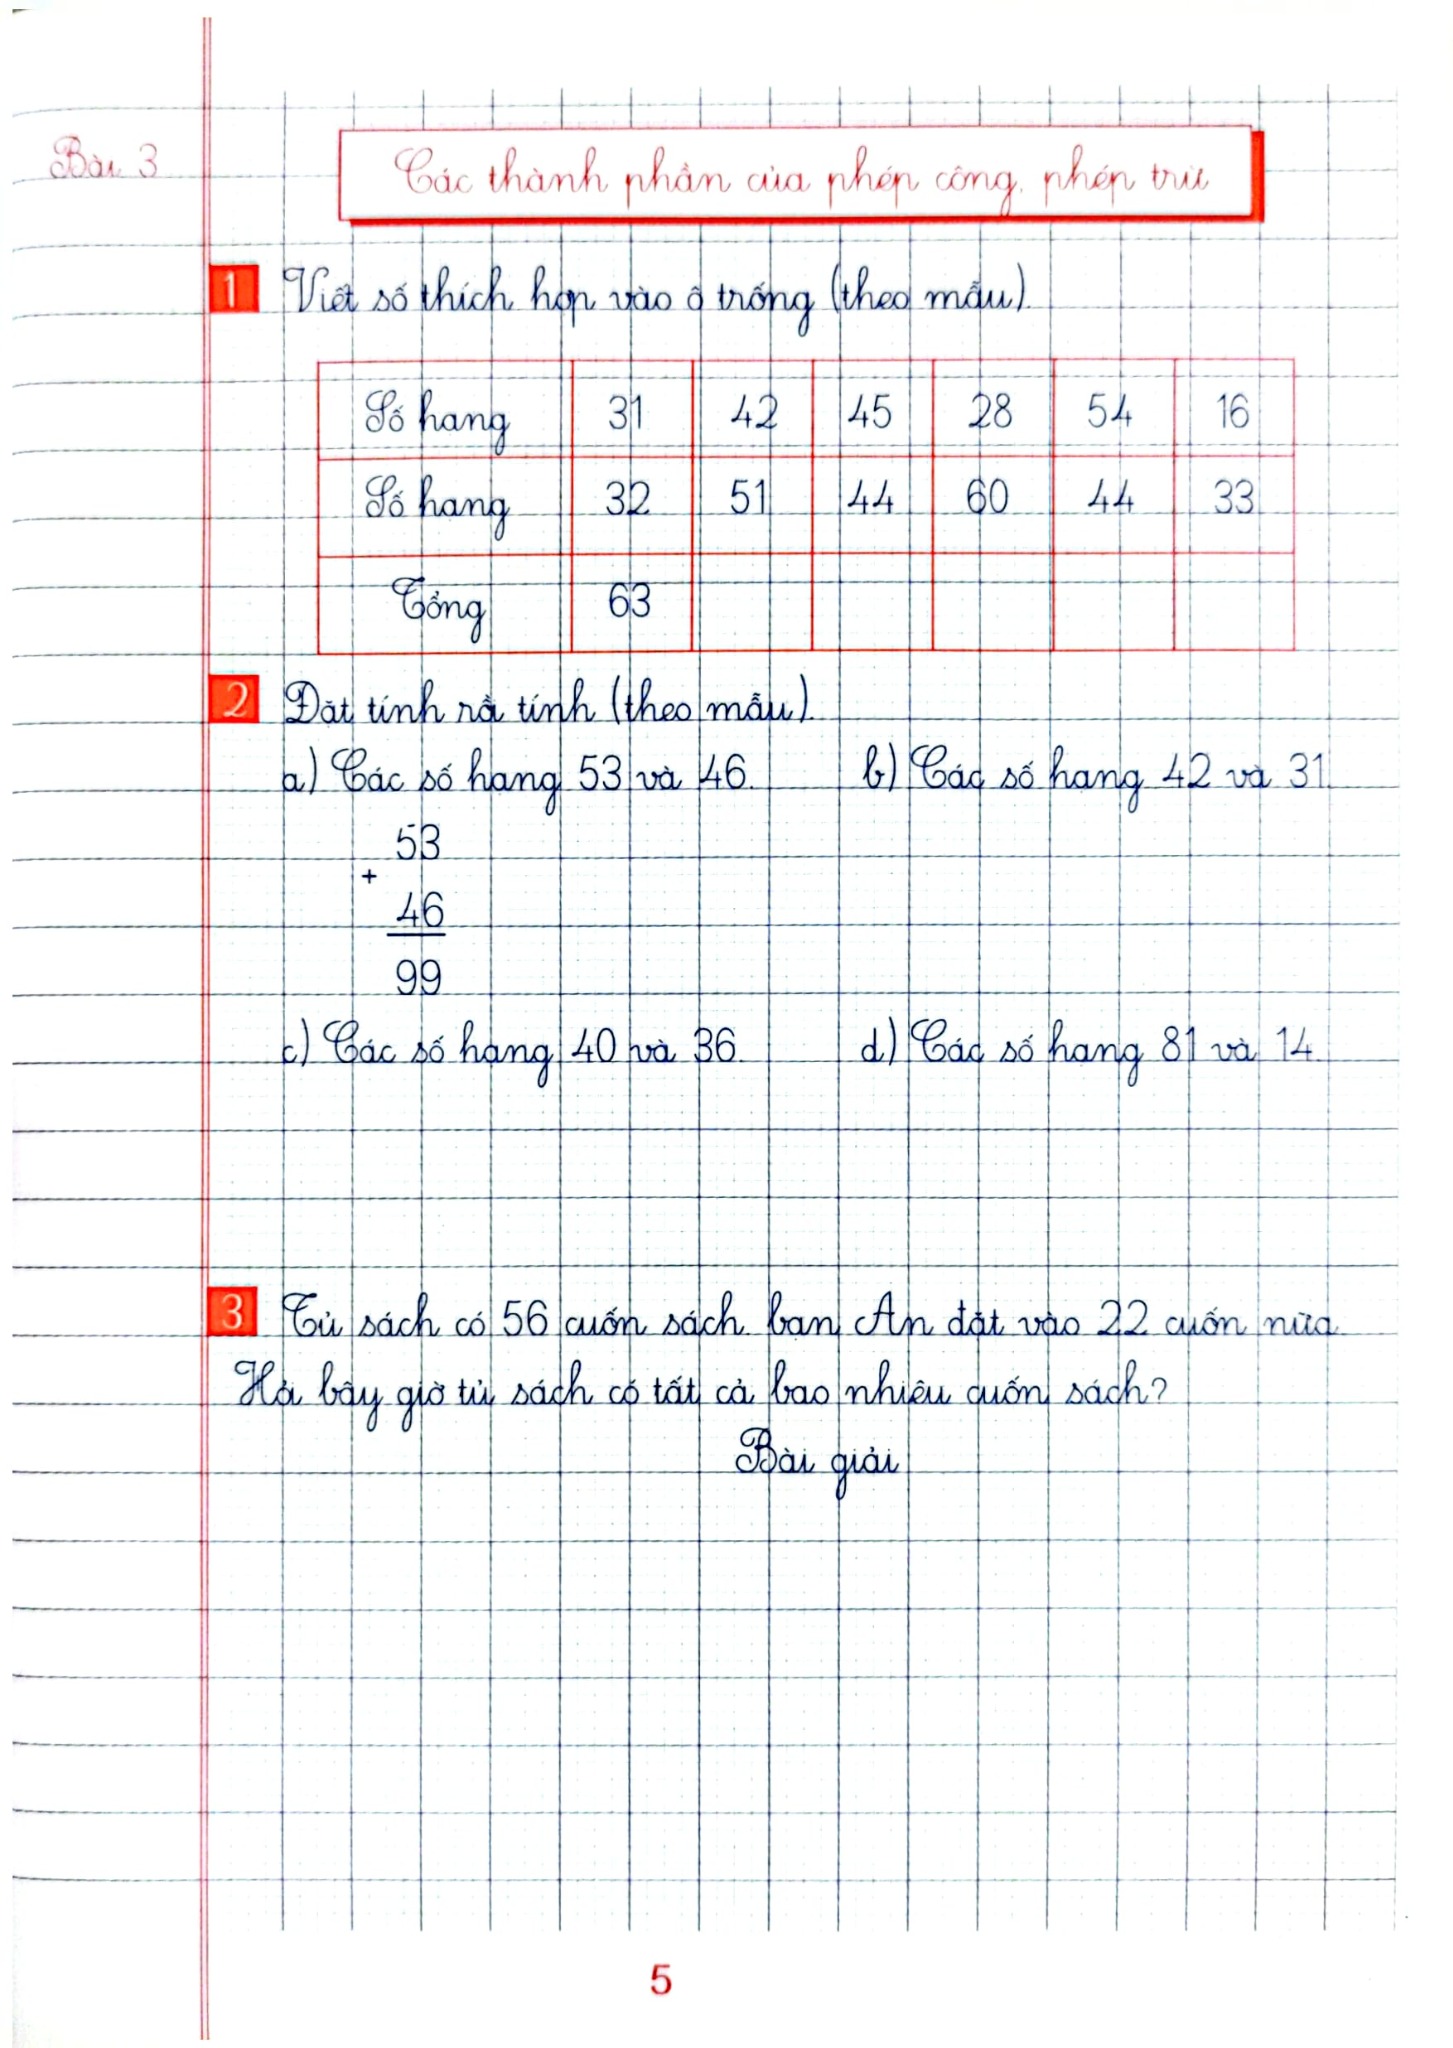 Bài 3
Các thành phần của phép cộng, phép trừ
1 Viết số thích hợp vào ô trống (theo mẫu).
Số hạng 31 42 45 28 54 16
Số hạng 32 51 44 60 44 33
Tổng 63
2 Đặt tính rồi tính (theo mẫu).
a) Các số hạng 53 và 46. b) Các số hạng 42 và 31.
53
+
46
99
c) Các số hạng 40 và 36. d) Các số hạng 81 và 14.
3 Tủ sách có 56 cuốn sách. bạn An đặt vào 22 cuốn nữa.
Hỏi bây giờ tủ sách có tất cả bao nhiêu cuốn sách?
Bài giải
5